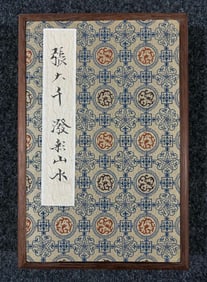 張大千潑彩山水